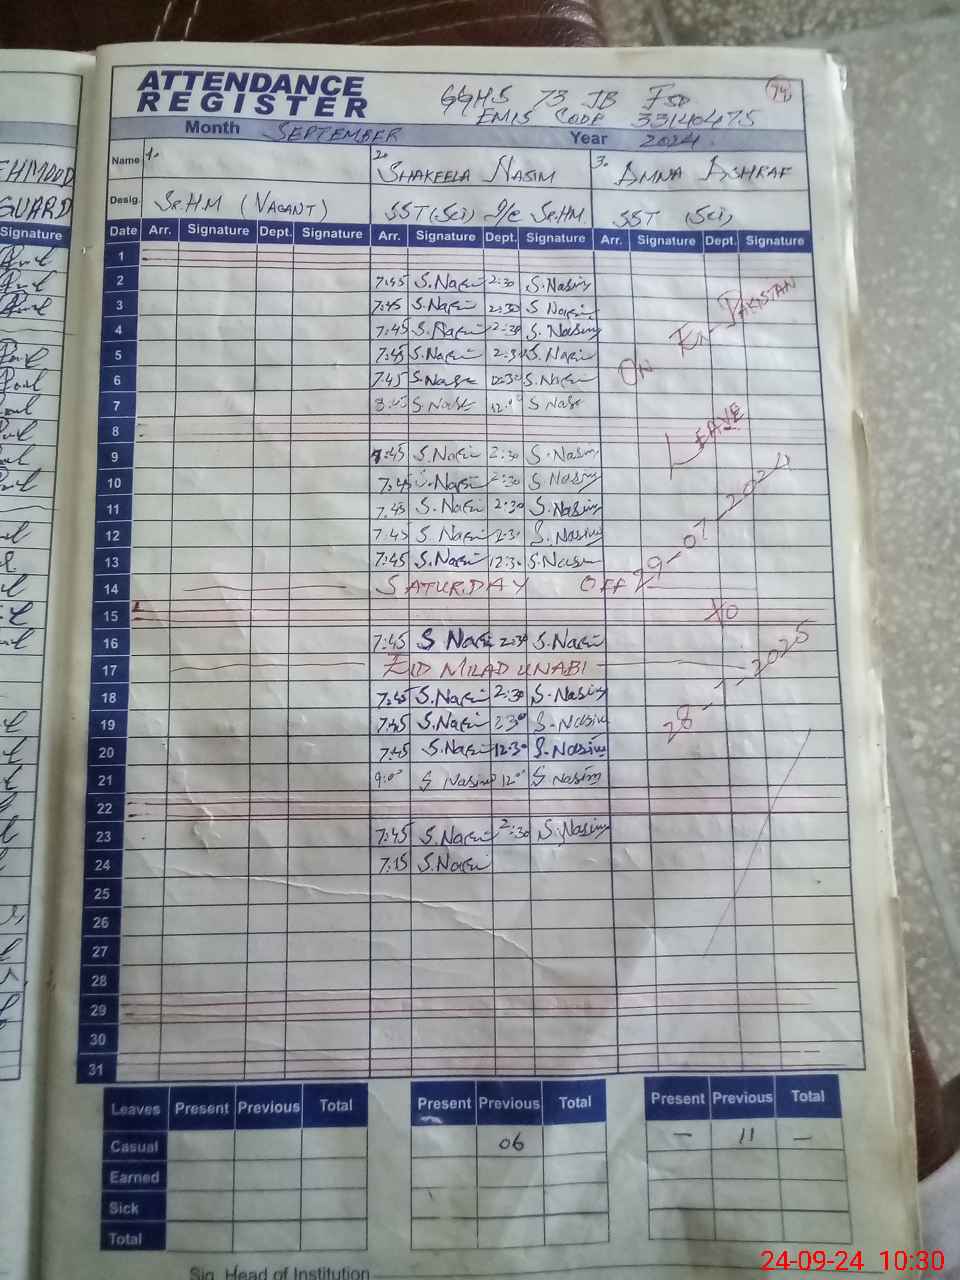 ATTENDANCE
REGISTER
GGHS 73 JB FSD
EMIS CODE 33140475
Month SEPTEMBER Year 2024
Name 1. 2. SHAKEELA NASIM 3. AMNA ASHRAF
Desig. Sr.H.M (VACANT) SST (Sci) I/c Sr.HM. SST (Sci)
Date Arr. Signature Dept. Signature Arr. Signature Dept. Signature Arr. Signature Dept. Signature
1
2 7:45 S.Nasim 2:30 S.Nasim
3 7:45 S.Nasim 2:30 S Nasim
4 7:45 S.Nasim 2:30 S.Nasim
5 7:45 S.Nasim 2:30 S.Nasim
6 7:45 S.Nasim 12:30 S.Nasim
7 S Nasim S Nasim
8
9 7:45 S.Nasim 2:30 S.Nasim
10 7:45 S.Nasim 2:30 S.Nasim
11 7:45 S.Nasim 2:30 S.Nasim
12 7:45 S.Nasim 2:30 S.Nasim
13 7:45 S.Nasim 12:30 S.Nasim
14 SATURDAY OFF
15
16 7:45 S Nasim 2:30 S.Nasim
17 EID MILAD UNABI
18 7:45 S.Nasim 2:30 S.Nasim
19 7:45 S.Nasim 2:30 S.Nasim
20 7:45 S.Nasim 12:30 S.Nasim
21 9:00 S Nasim 12:00 S Nasim
22
23 7:45 S.Nasim 2:30 S.Nasim
24 7:15 S.Nasim
25
26
27
28
29
30
31
ON EX-PAKISTAN
LEAVE
29-07-2024
TO
28-7-2025
Leaves Present Previous Total Present Previous Total Present Previous Total
Casual 06 — 11 —
Earned
Sick
Total
Sig. Head of Institution
EHMOOD
GUARD
Signature
24-09-24 10:30